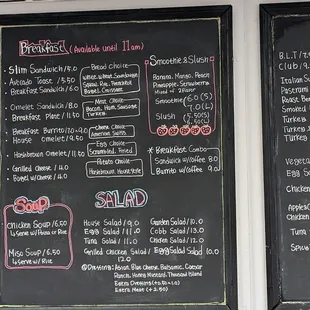 Breakfast (Available until 11am)
Slim Sandwich/5.0
Avocado Toast/5.50
Breakfast Sandwich/6.0
Omelet Sandwich/8.0
Breakfast Plate/11.50
Breakfast Burrito/7.0-9.0
House Omelet/9.50
Hashbrown Omelet/11.50
Grilled Cheese/4.0
Bagel w/Cheese/4.0
Bread Choice
Wheat, White, Sourdough
Bagel, Croissant
Meat Choice
Bacon, Ham, Sausage
Turkey
Cheese Choice
American, Swiss
Egg Choice
Scrambled, Fried
Potato Choice
Hashbrown, House style
Smoothie & Slush
Banana, Mango, Peach
Pineapple, Strawberry
Mixed of 2 Flavor
Smoothie 6.0 (S)
7.0 (L)
Slush 5.50 (S)
6.50 (L)
* Breakfast Combo
Sandwich w/Coffee 8.0
Burrito w/Coffee 9.0
Soup
Chicken Soup/6.50
& Serve w/Bread or Rice
Miso Soup/6.50
& Serve w/Rice
SALAD
House Salad/9.0
Egg Salad/11.0
Tuna Salad/11.0
Grilled Chicken Salad/
12.0
Garden Salad/10.0
Cobb Salad/13.0
Chicken Salad/12.0
Egg Salad Salad 10.0
@ Dressing: Asian, Blue Cheese, Balsamic, Caesar
Ranch, Honey Mustard, Thousand Island
Extra Dressing
Extra Meat (+2.50)
B.L.T
Club
Italian Su
Pastrami
Roast Be
Smoked
Turkey
Turkey
Turkey
Veget
Egg S
Chicken
Apple
Chicken
Tuna
Spic